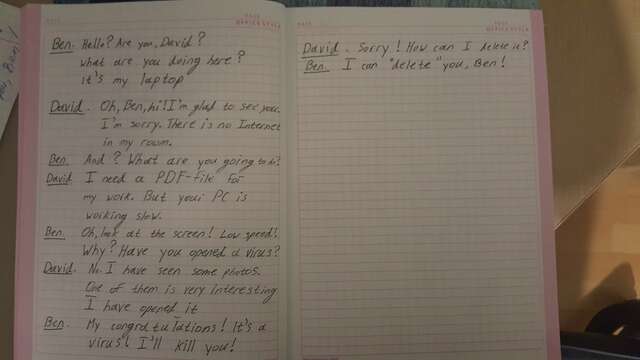 Ben. Hello? Are you, David?
what are you doing here?
it's my laptop
David. Oh, Ben, hi! I'm glad to see you.
I'm sorry. There is no Internet
in my room.
Ben. And? What are you going to do?
David I need a PDF-file for
my work. But your PC is
working slow.
Ben. Oh, look at the screen! Low speed!
Why? Have you opened a virus?
David. No. I have seen some photos.
One of them is very interesting
I have opened it
Ben. My congratulations! It's a
virus"! I'll kill you!
David. Sorry! How can I delete it?
Ben. I can "delete" you, Ben!